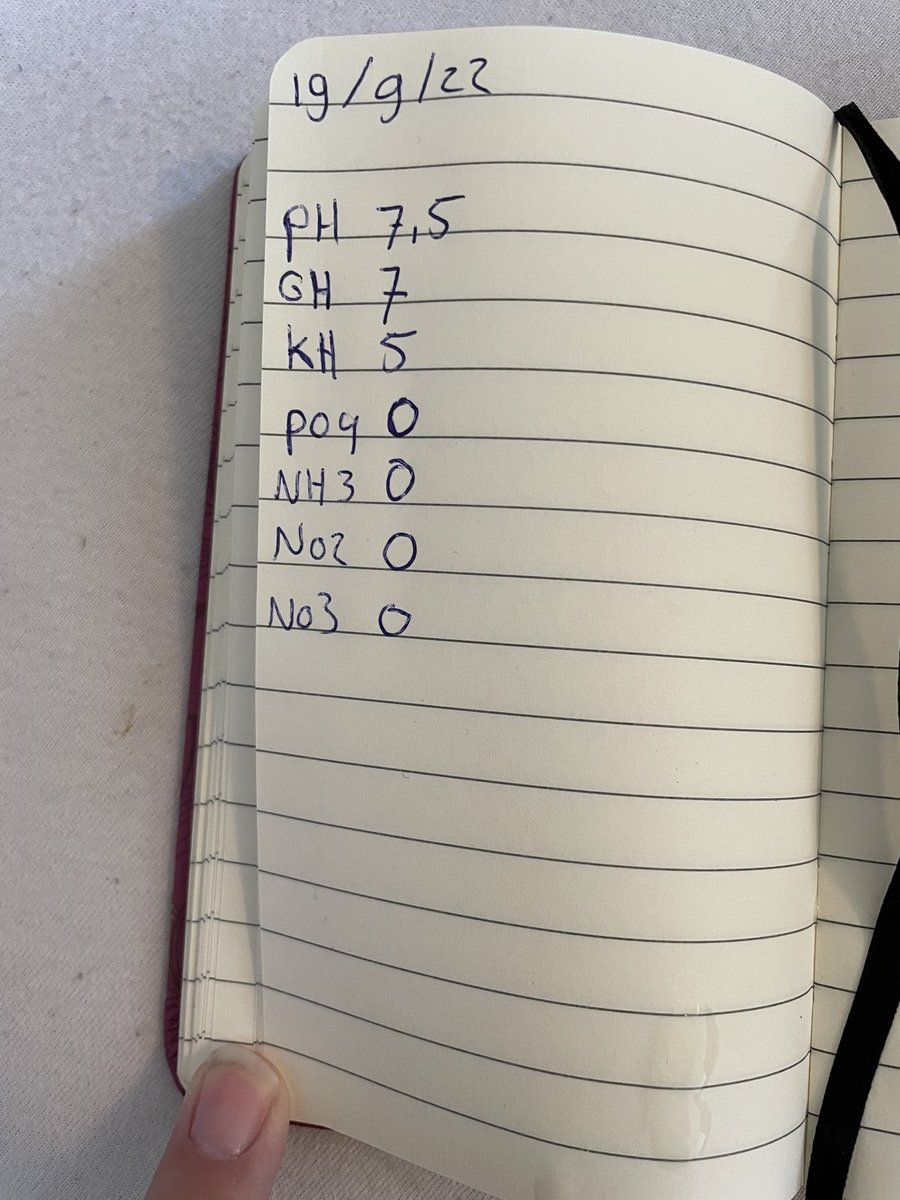 19/9/22
pH 7,5
GH 7
KH 5
PO4 0
NH3 0
NO2 0
NO3 0